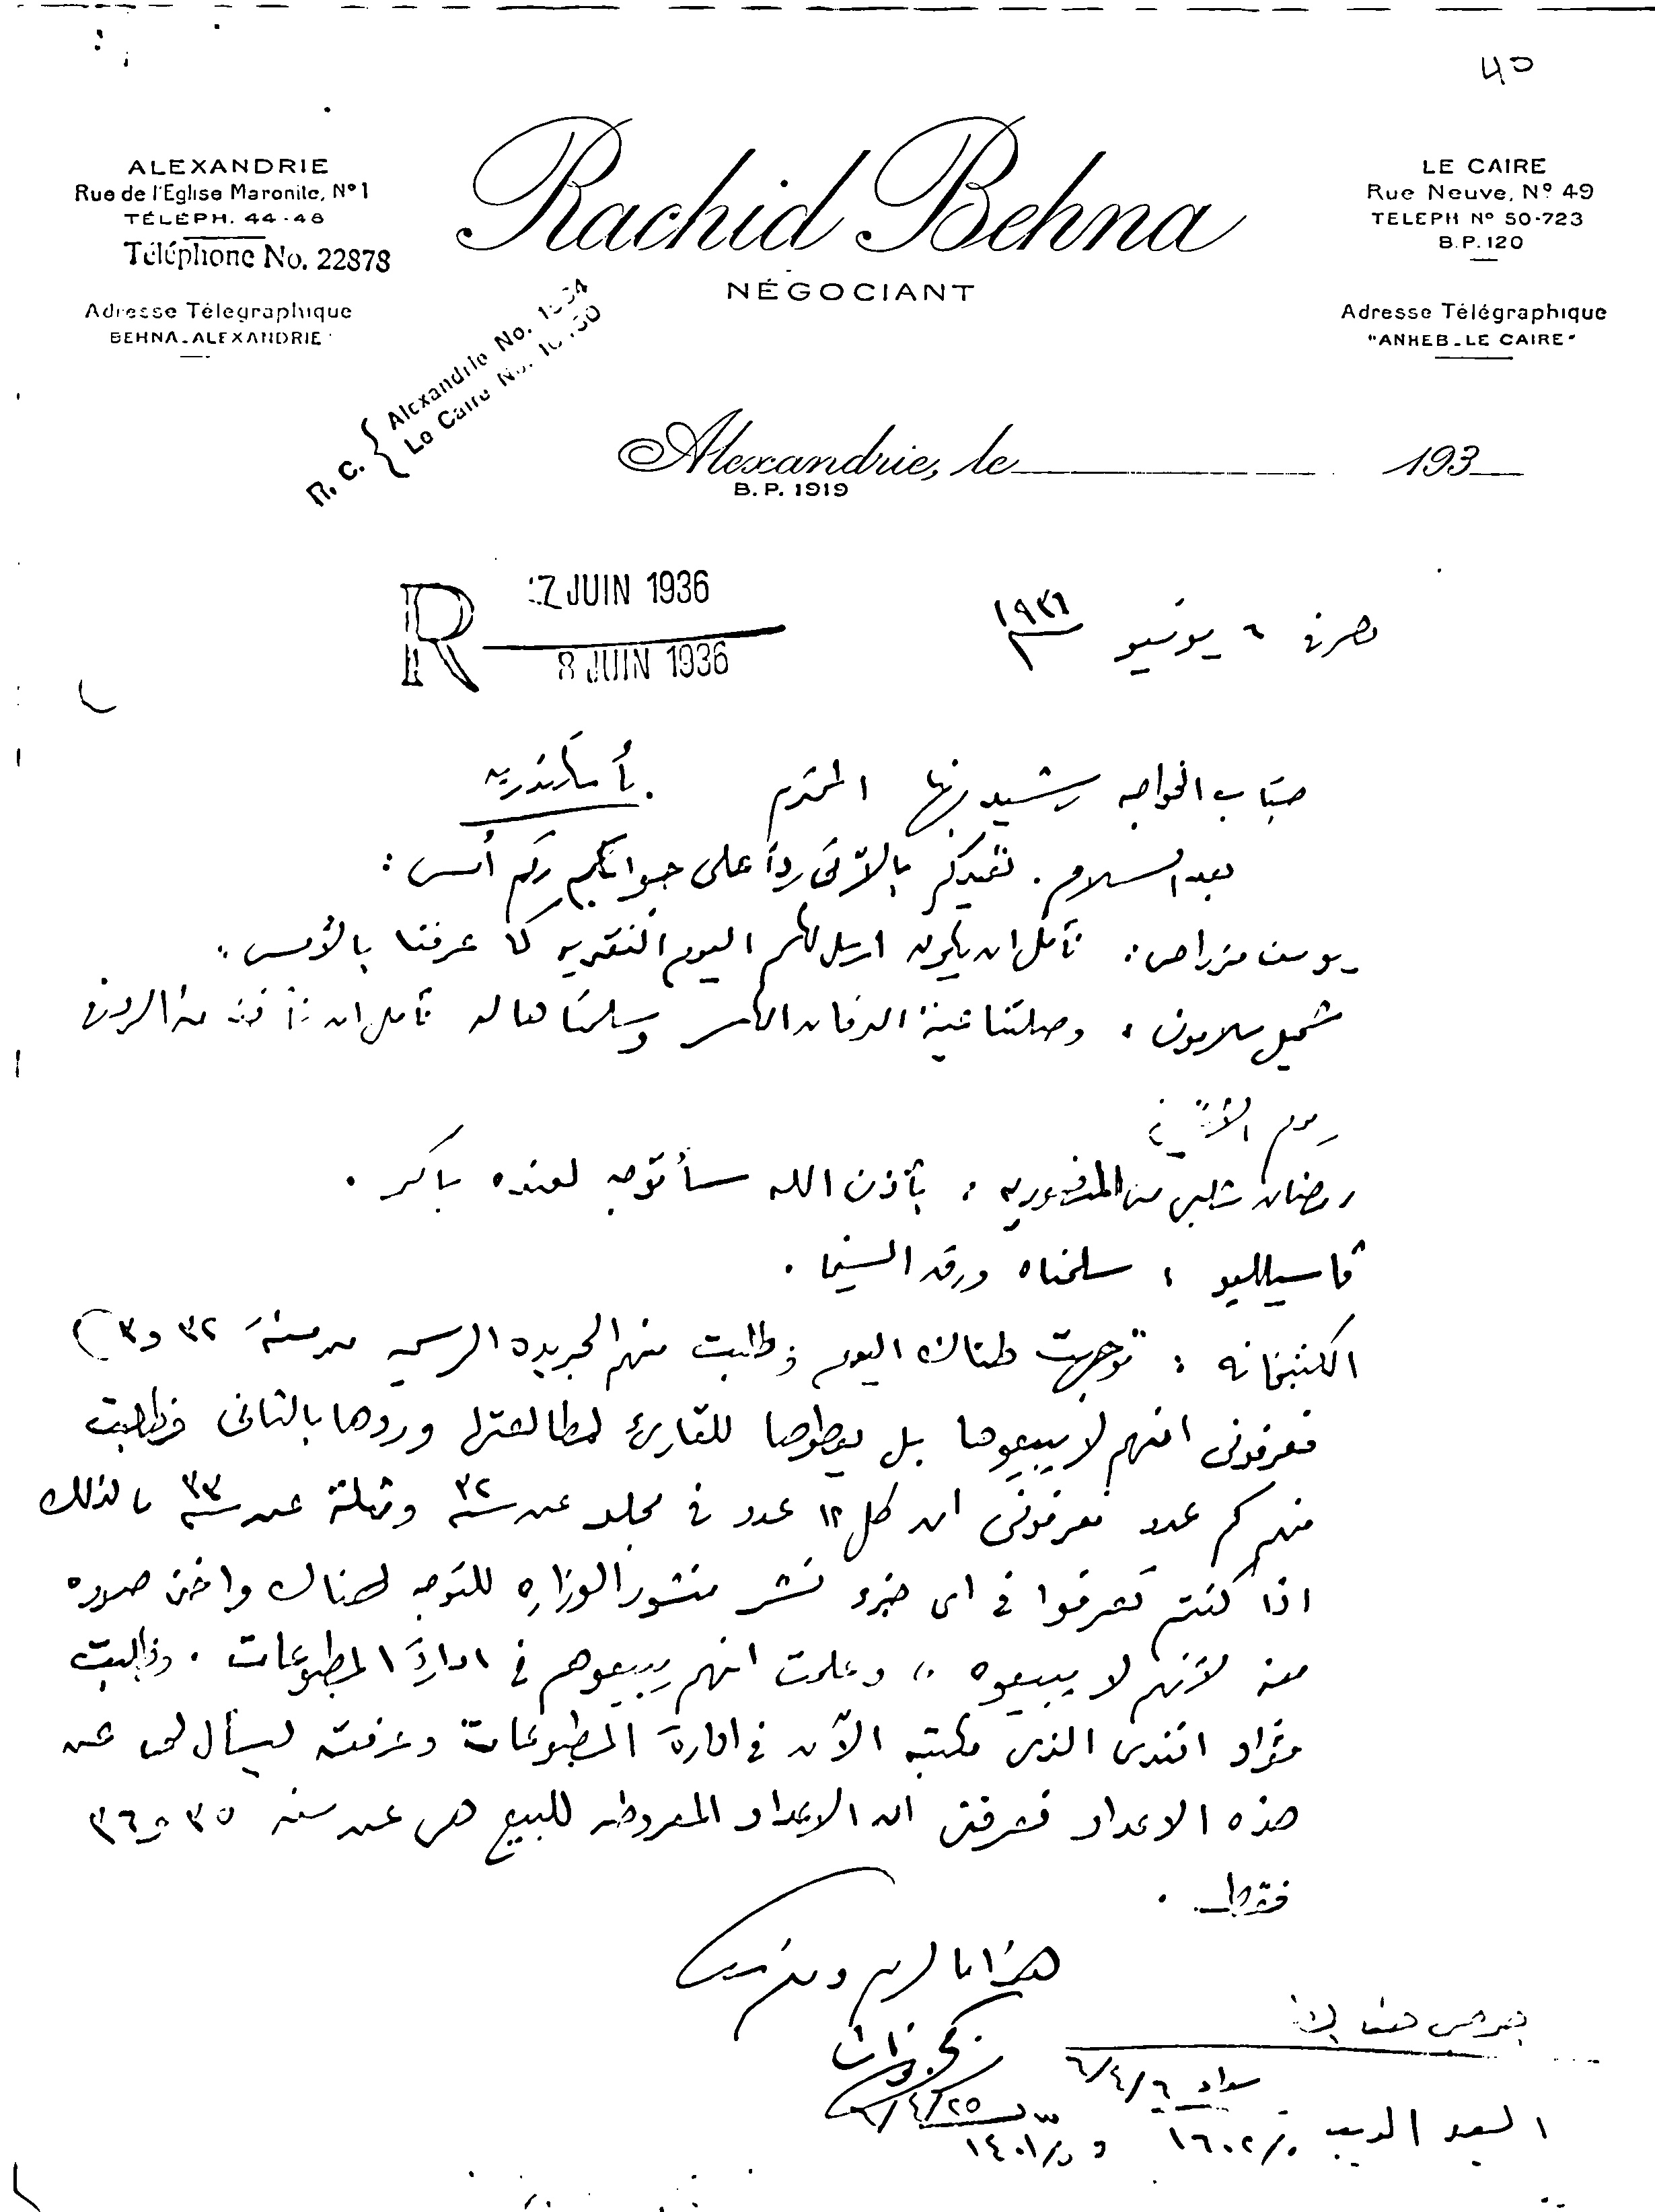 ٤٥
ALEXANDRIE
Rue de l'Eglise Maronite, Nº 1
TÉLÉPH. 44-48
Téléphone No. 22878
Adresse Télegraphique
BEHNA-ALEXANDRIE
Rachid Behna
NÉGOCIANT
LE CAIRE
Rue Neuve, Nº 49
TELEPH Nº 50-723
B.P. 120
Adresse Télégraphique
"ANHEB-LE CAIRE"
R. C. { Alexandrie No.
Le Caire No.
Alexandrie, le 193
B. P. 1919
R
7 JUIN 1936
8 JUIN 1936
مصر في ٦ يونيو ١٩٣٦
جناب الخواجه رشيد بهنا المحترم بأسكندريه
بعد السلام. نفيدكم بالآتي رداً على جوابكم رقم أمس :
يوسف مزراحي : نأمل ان يكون ارسل لكم اليوم النقديه كما عرفنا بالأمس.
شميل سلامون : وصلتنا عينة وسلمناها له نأمل ان نأخذ منه الردن
يوم الأثنين
رمضان شلبي من : بأذن الله سأتوجه لعنده باكر .
قاسيلليو : سلمناه ورق السينما .
الكتبخانه : توجهت هناك اليوم وطلبت منهم الجريده الرسميه من سنة ٣٢ و٣٣
فعرفوني انهم لا يبيعوها بل يعطوها للقارئ لمطالعتها وردها بالثاني فطلبت
منهم كم عدد فعرفوني ان كل ١٢ عدد في مجلد عن سنة ٣٢ ومثله عن سنة ٣٣ لذلك
اذا كنتم تعرفوا في اي جزء نشر منشور الوزاره للتوجه لهناك واخذ صوره
منه لأنهم لا يبيعوه ،، وعلمت انهم يبيعوهم في ادارة المطبوعات .
فؤاد افندى الذى مكتبه الآن في ادارة المطبوعات وعرفته ليسأل لنا عن
هذه الاعداد فعرفني ان الاعداد المعروضه للبيع هى عن سنه ٣٥ و٣٦
فقط .
هذا ما لزم ودمتم
سداد ٦/٤/٦
السيد الديب ١٦٠٢
٢٥/٤/٦
١٤٠١